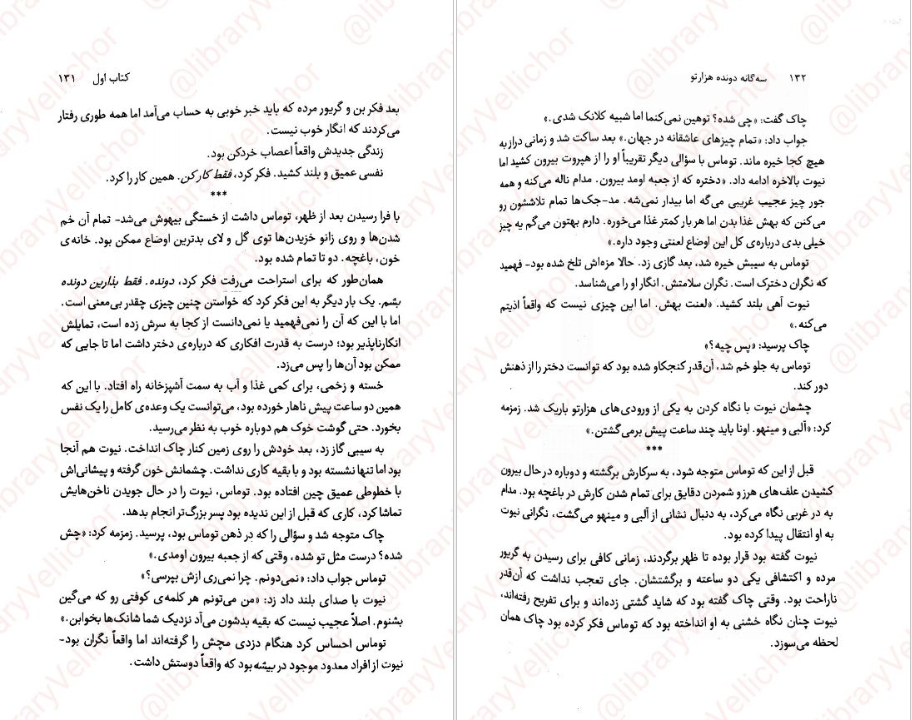 ۱۳۲ سه‌گانه دونده هزارتو
چاک گفت: «چی شده؟ توهین نمی‌کنما اما شبیه کلانک شدی.»
جواب داد: «تمام چیزهای عاشقانه در جهان.» بعد ساکت شد و زمانی دراز به
هیچ کجا خیره ماند. توماس با سؤالی دیگر تقریباً او را از هپروت بیرون کشید اما
نیوت بالاخره ادامه داد. «دختره که از جعبه اومد بیرون. مدام ناله می‌کنه و همه
جور چیز عجیب غریبی می‌گه اما بیدار نمی‌شه. مد-جک‌ها تمام تلاششون رو
می‌کنن که بهش غذا بدن اما هر بار کمتر غذا می‌خوره. دارم بهتون می‌گم یه چیز
خیلی بدی درباره‌ی کل این اوضاع لعنتی وجود داره.»
توماس به سیبش خیره شد، بعد گازی زد. حالا مزه‌اش تلخ شده بود- فهمید
که نگران دخترک است. نگران سلامتش. انگار او را می‌شناسد.
نیوت آهی بلند کشید. «لعنت بهش. اما این چیزی نیست که واقعاً اذیتم
می‌کنه.»
چاک پرسید: «پس چیه؟»
توماس به جلو خم شد، آن‌قدر کنجکاو شده بود که توانست دختر را از ذهنش
دور کند.
چشمان نیوت با نگاه کردن به یکی از ورودی‌های هزارتو باریک شد. زمزمه
کرد: «آلبی و مینهو. اونا باید چند ساعت پیش برمی‌گشتن.»
***
قبل از این که توماس متوجه شود، به سرکارش برگشته و دوباره در حال بیرون
کشیدن علف‌های هرز و شمردن دقایق برای تمام شدن کارش در باغچه بود. مدام
به در غربی نگاه می‌کرد، به دنبال نشانی از آلبی و مینهو می‌گشت، نگرانی نیوت
به او انتقال پیدا کرده بود.
نیوت گفته بود قرار بوده تا ظهر برگردند، زمانی کافی برای رسیدن به گریور
مرده و اکتشافی یکی دو ساعته و برگشتشان. جای تعجب نداشت که آن‌قدر
ناراحت بود. وقتی چاک گفته بود که شاید گشتی زده‌اند و برای تفریح رفته‌اند،
نیوت چنان نگاه خشنی به او انداخته بود که توماس فکر کرده بود چاک همان
لحظه می‌سوزد.
کتاب اول ۱۳۱
بعد فکر بن و گریور مرده که باید خبر خوبی به حساب می‌آمد اما همه طوری رفتار
می‌کردند که انگار خوب نیست.
زندگی جدیدش واقعاً اعصاب خردکن بود.
نفسی عمیق و بلند کشید. فکر کرد، فقط کار کن. همین کار را کرد.
***
با فرا رسیدن بعد از ظهر، توماس داشت از خستگی بیهوش می‌شد- تمام آن خم
شدن‌ها و روی زانو خزیدن‌ها توی گل و لای بدترین اوضاع ممکن بود. خانه‌ی
خون، باغچه. دو تا تمام شده بود.
همان‌طور که برای استراحت می‌رفت فکر کرد، دونده. فقط بذارین دونده
بشم. یک بار دیگر به این فکر کرد که خواستن چنین چیزی چقدر بی‌معنی است.
اما با این که آن را نمی‌فهمید یا نمی‌دانست از کجا به سرش زده است، تمایلش
انکارناپذیر بود؛ درست به قدرت افکاری که درباره‌ی دختر داشت اما تا جایی که
ممکن بود آن‌ها را پس می‌زد.
خسته و زخمی، برای کمی غذا و آب به سمت آشپزخانه راه افتاد. با این که
همین دو ساعت پیش ناهار خورده بود، می‌توانست یک وعده‌ی کامل را یک نفس
بخورد. حتی گوشت خوک هم دوباره خوب به نظر می‌رسید.
به سیبی گاز زد، بعد خودش را روی زمین کنار چاک انداخت. نیوت هم آنجا
بود اما تنها نشسته بود و با بقیه کاری نداشت. چشمانش خون گرفته و پیشانی‌اش
با خطوطی عمیق چین افتاده بود. توماس، نیوت را در حال جویدن ناخن‌هایش
تماشا کرد، کاری که قبل از این ندیده بود پسر بزرگ‌تر انجام بدهد.
چاک متوجه شد و سؤالی را که در ذهن توماس بود، پرسید. زمزمه کرد: «چش
شده؟ درست مثل تو شده، وقتی که از جعبه بیرون اومدی.»
توماس جواب داد: «نمی‌دونم. چرا نمی‌ری ازش بپرسی؟»
نیوت با صدای بلند داد زد: «من می‌تونم هر کلمه‌ی کوفتی رو که می‌گین
بشنوم. اصلاً عجیب نیست که بقیه بدشون می‌آد نزدیک شما شانک‌ها بخوابن.»
توماس احساس کرد هنگام دزدی مچش را گرفته‌اند اما واقعاً نگران بود-
نیوت از افراد معدود موجود در بیشه بود که واقعاً دوستش داشت.
@libraryVellichor